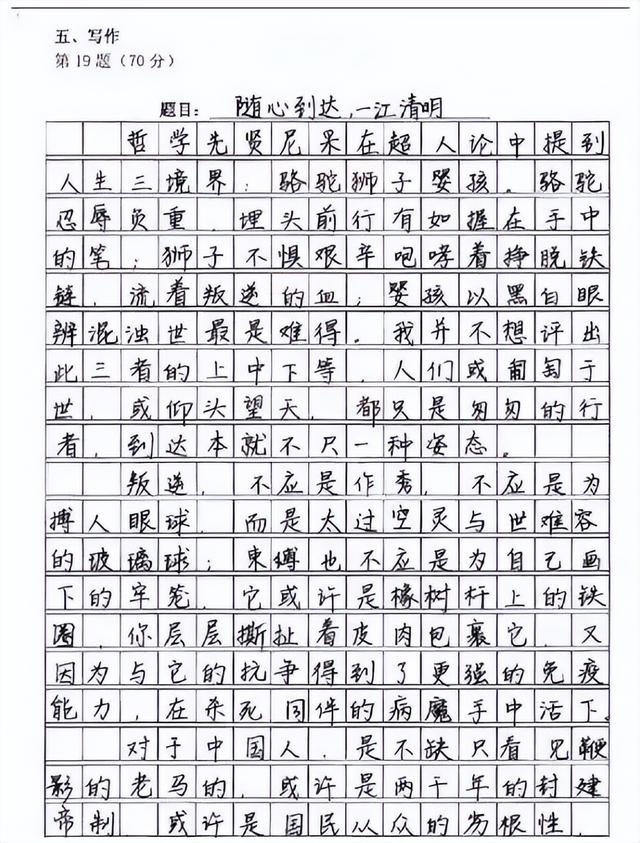 五、写作
第19题（70分）
题目：随心到达,一江清明
哲学先贤尼采在超人论中提到
人生三境界：骆驼狮子婴孩。骆驼
忍辱负重，埋头前行有如握在手中
的笔；狮子不惧艰辛咆哮着挣脱铁
链，流着叛逆的血；婴孩以黑白眼
辨混浊世最是难得。我并不想评出
此三者的上中下等，人们或匍匐于
世，或仰头望天，都只是匆匆的行
者，到达本就不只一种姿态。
叛逆，不应是作秀，不应是为
搏人眼球，而是太过空灵与世难容
的玻璃球；束缚也不应是为自己画
下的牢笼，它或许是橡树杆上的铁
圈，你层层撕扯着皮肉包裹它，又
因为与它的抗争得到了更强的免疫
能力，在杀死同伴的病魔手中活下。
对于中国人，是不缺只看见鞭
影的老马的，或许是两千年的封建
帝制，或许是国民从众的劣根性，